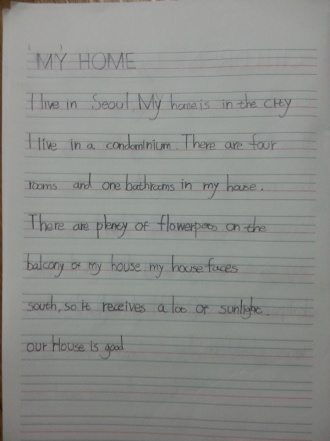 MY HOME
I live in Seoul. My home is in the city
I live in a condominium. There are four
rooms and one bathrooms in my house.
There are plency of flowerpots on the
balcony of my house. my house faces
south, so it receives a lot of sunlight.
our House is good